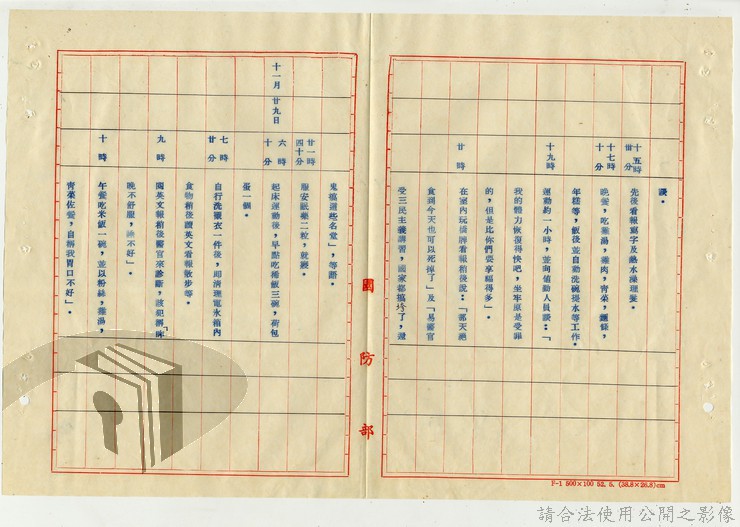 談。
十五時卅分 先後看報寫字及熱水澡理髮。
十七時十分 晚餐,吃雞湯,雞肉,青菜,麵條,
年糕等,飯後並自動洗碗提水等工作。
十九時 運動約一小時,並向值勤人員談:「
我的體力恢復得快吧,坐牢原是受罪
的,但是比你們要享福得多」。
廿時 在室內玩橋牌看報稍後說:「那天絕
食到今天也可以死掉了」及「易醫官
受三民主義講習,國家都搞垮了,還
國防部
鬼搞這些名堂」,等語。
廿一時四十分 服安眠藥二粒,就寢。
十一月廿九日 六時十分 起床運動後,早點吃稀飯三碗,荷包
蛋一個。
七時廿分 自行洗襯衣一件後,即清理電冰箱內
食物稍後讀英文看報散步等。
九時 閱英文報稍後醫官來診斷,該犯謂「昨
晚不舒服,睡不好」。
十時 午餐吃米飯一碗,並以粉絲,雞湯,
青菜佐餐,自稱我胃口不好」。
P-1 500×100 52. 5. (38.8×26.8)cm
請合法使用公開之影像